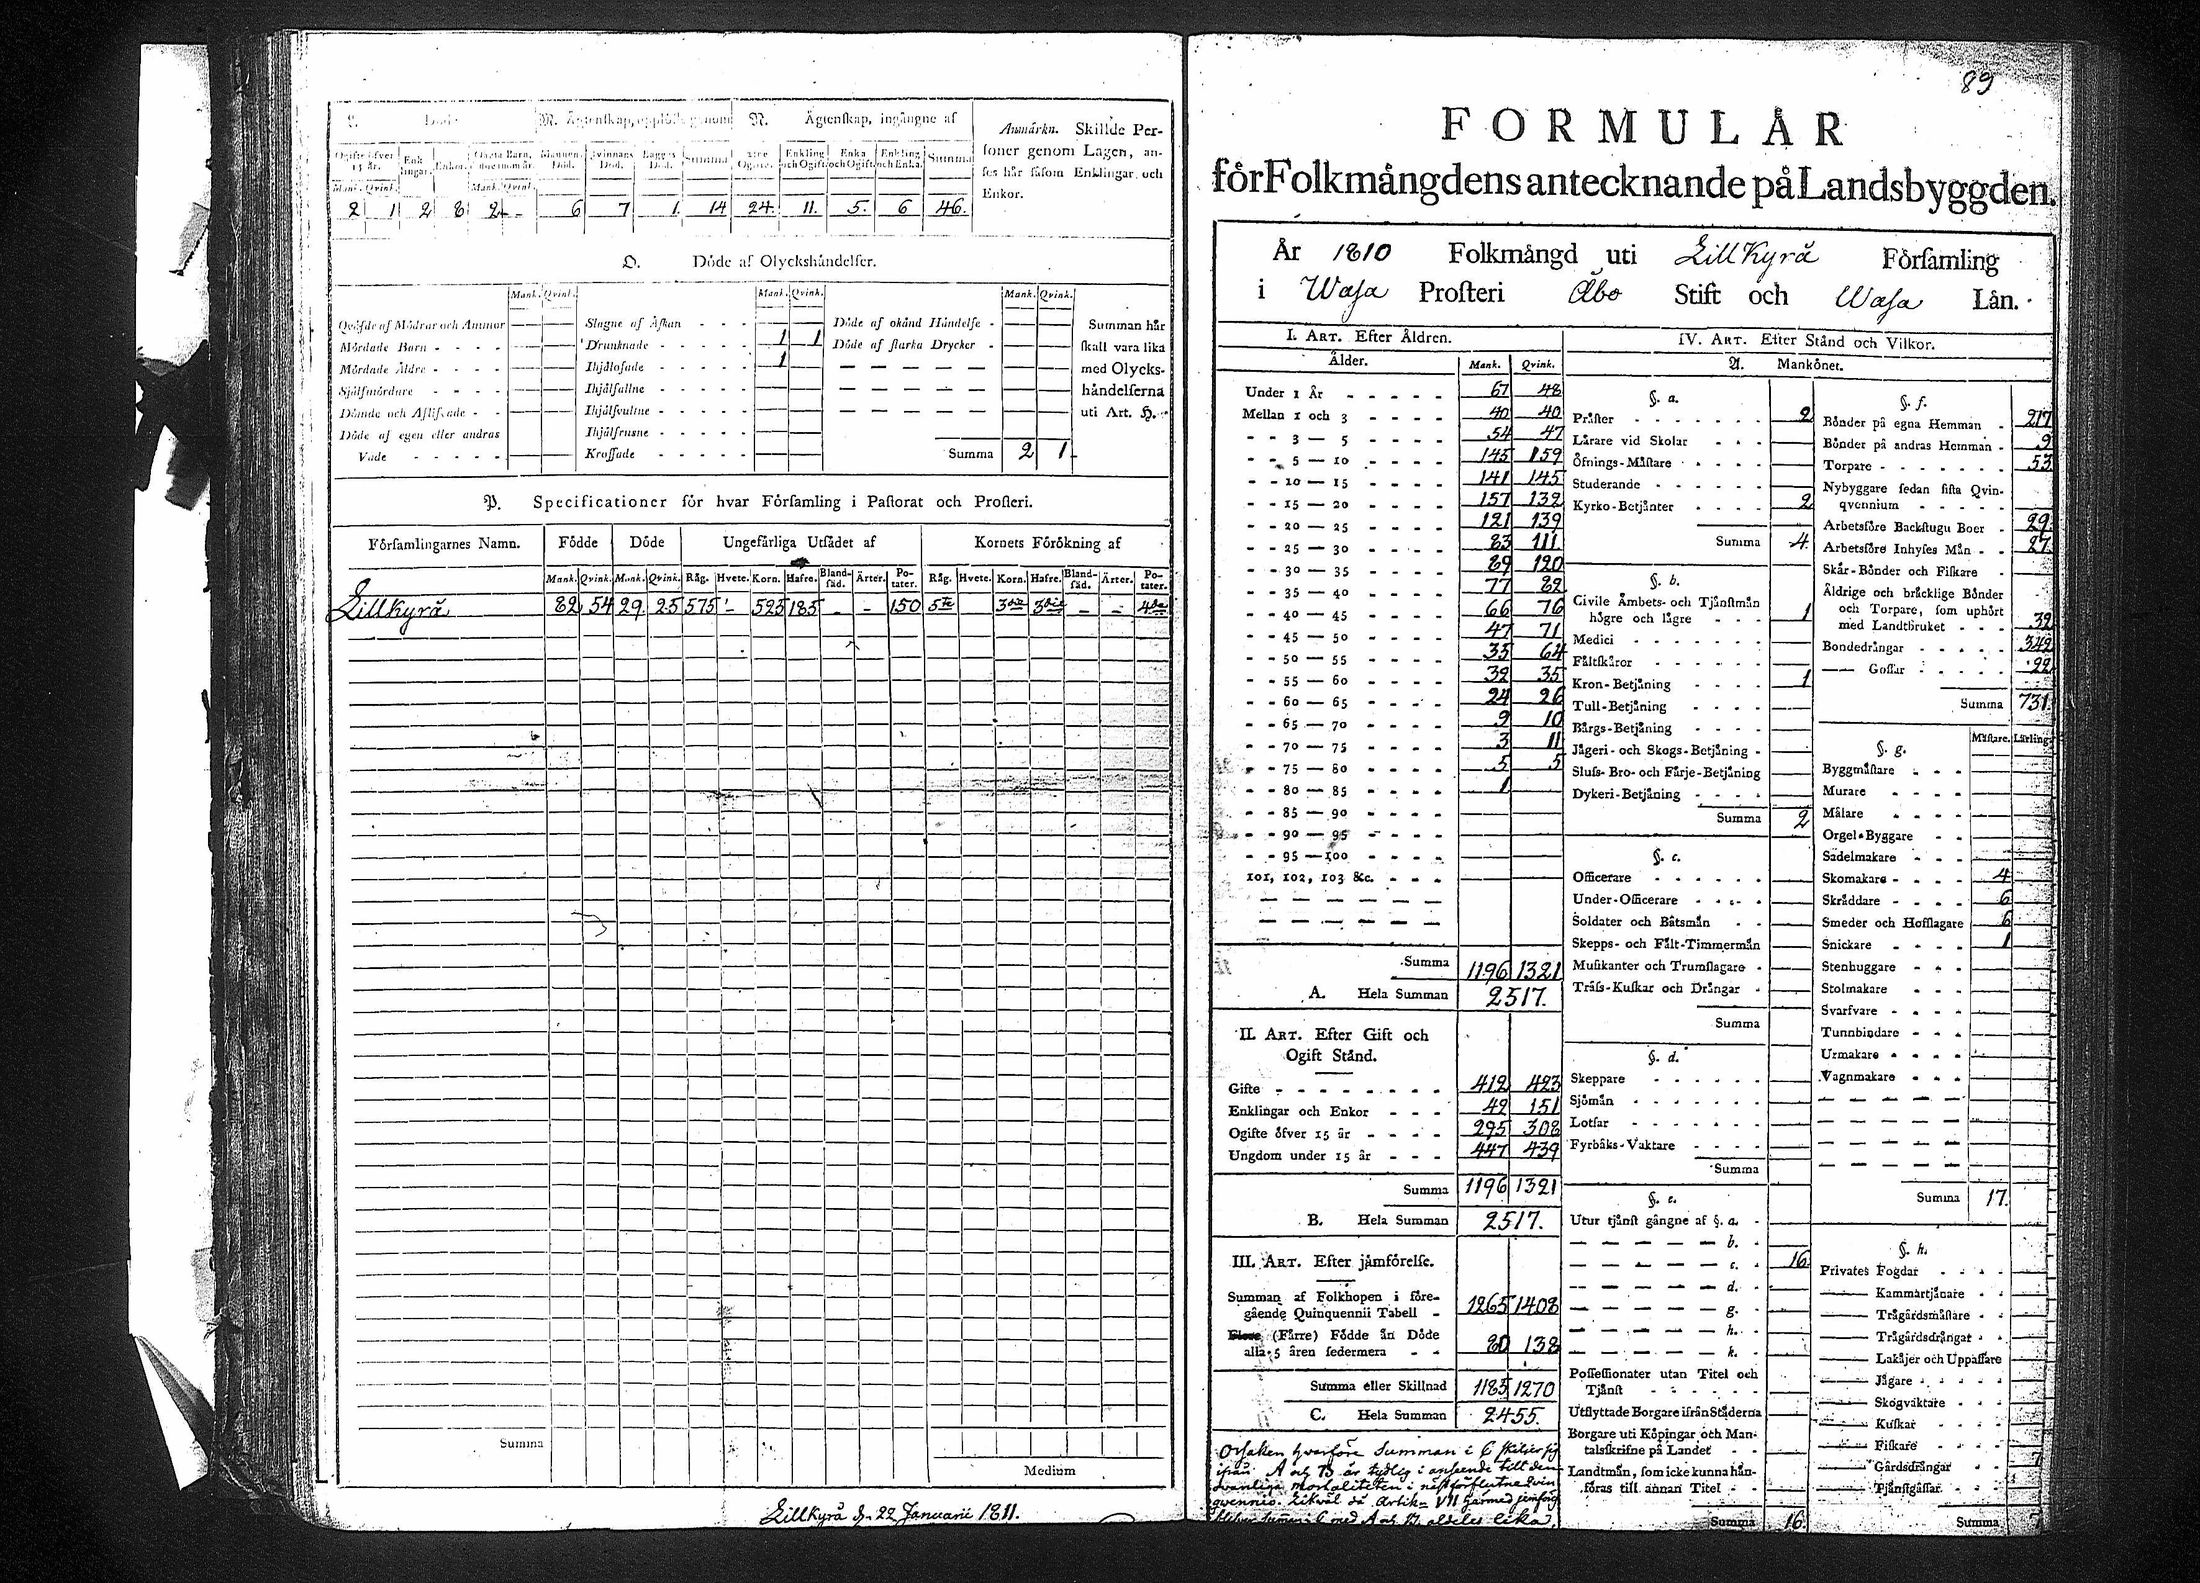 L. Döde
M. Ägtenskap, upplöste genom
N. Ägtenskap, ingångne af
Anmärkn. Skillde Personer genom Lagen, anses här såsom Enklingar och Enkor.
Ogifte öfver 15 år. Enklingar. Enkor. Oäcta Barn, Mannens Död. Qvinnans Död. Bägges Död. Summa Enkling och Ogift Enka och Ogift Enkling och Enka. Summa
Mank. Qvink. Mank. Qvink.
2 1 2 8 2 - 6 7 1 14 24. 11. 5. 6 46.
O. Döde af Olyckshändelser.
Mank. Qvink. Mank. Qvink. Mank. Qvink.
Qväfde af Mödrar och Ammor
Mördade Barn
Mördade Äldre
Självmördare
Döde af egen eller andras
Vade
Slagne af Åskan
Drunknade 1 1
Ihjälosade 1
Ihjälfallne
Ihjälfrusne
Krossade
Döde af okänd Händelse
Döde af starka Drycker
Summa 2 1
Summan här
skall vara lika
med Olycks-
händelserna
uti Art. H.
P. Specificationer för hvar Församling i Pastorat och Prosteri.
Församlingarnes Namn. Födde Döde Ungefärliga Utsädet af Kornets Förökning af
Mank. Qvink. Mank. Qvink. Råg. Hvete. Korn. Hafre. Blandsäd. Ärter. Potater. Råg. Hvete. Korn. Hafre. Blandsäd. Ärter. Potater.
Lillkyrå 82 54 29. 25 575 - 525 185 - - 150 5te 3die 3die - - 4de
Summa
Medium
Lillkyrå d. 22 Januarii 1811.
89
FORMULÅR
förFolkmångdens antecknande på Landsbyggden.
År 1810 Folkmångd uti LillKyrå Församling
i Wasa Prosteri Åbo Stift och Wasa Lån.
I. ART. Efter Åldren.
Ålder. Mank. Qvink.
Under 1 År 67 48
Mellan 1 och 3 40 40
3 — 5 54 47
5 — 10 145 159
10 — 15 141 145
15 — 20 157 132
20 — 25 121 139
25 — 30 83 111
30 — 35 89 120
35 — 40 77 82
40 — 45 66 76
45 — 50 47 71
50 — 55 35 64
55 — 60 32 35
60 — 65 24 26
65 — 70 9 10
70 — 75 3 11
75 — 80 5 5
80 — 85 1
85 — 90
90 — 95
95 — 100
101, 102, 103 &c.
Summa 1196 1321
A. Hela Summan 2517.
II. ART. Efter Gift och
Ogift Stånd.
Gifte 412 423
Enklingar och Enkor 42 151
Ogifte öfver 15 år 295 308
Ungdom under 15 år 447 439
Summa 1196 1321
B. Hela Summan 2517.
III. ART. Efter jämförelse.
Summan af Folkhopen i före-
gående Quinquennii Tabell 1265 1408
(Färre) Födde än Döde
alla 5 åren sedermera 80 138
Summa eller Skillnad 1185 1270
C. Hela Summan 2455.
Orsaken hvarföre Summan i C skiljer sig
ifrån A och B är tydlig i anseende till den
mortaliteten i nästförflutne Quin-
quennio. Likväl då Artik. VII härmed jemföres
Summan i C med A och B aldeles lika.
IV. ART. Efter Stånd och Vilkor.
A. Mankönet.
§. a.
Präster 2
Lärare vid Skolar
Öfnings-Mästare
Studerande
Kyrko-Betjänter 2
Summa 4.
§. b.
Civile Åmbets- och Tjänstmän
högre och lägre 1
Medici
Fältskärer
Kron-Betjäning 1
Tull-Betjäning
Bärgs-Betjäning
Jägeri- och Skogs-Betjäning
Sluss- Bro- och Färje-Betjäning
Dykeri-Betjäning
Summa 2
§. c.
Officerare
Under-Officerare
Soldater och Båtsmän
Skepps- och Fält-Timmermän
Musikanter och Trumslagare
Träss-Kuskar och Drängar
Summa
§. d.
Skeppare
Sjömän
Lotsar
Fyrbåks-Vaktare
Summa
§. e.
Utur tjänst gångne af §. a.
b.
c. 16.
d.
g.
h.
k.
Possessionater utan Titel och
Tjänst
Utflyttade Borgare ifrån Städerna
Borgare uti Köpingar och Man-
talsskrifne på Landet
Landtmän, som icke kunna hän-
föras till annan Titel
Summa 16.
§. f.
Bönder på egna Hemman 217
Bönder på andras Hemman 9
Torpare 53
Nybyggare sedan sista Qvin-
qvennium
Arbetsföre Backstugu Boer 29.
Arbetsföre Inhyses Män 27.
Skär-Bönder och Fiskare
Äldrige och bräcklige Bönder
och Torpare, som uphört
med Landtbruket 32
Bondedrängar 342
—— Gossar 22
Summa 731.
§. g. Mästare. Lärling.
Byggmästare
Murare
Målare
Orgel-Byggare
Sadelmakare
Skomakare 4
Skräddare 6
Smeder och Hofslagare 6
Snickare 1
Stenhuggare
Stolmakare
Svarfvare
Tunnbindare
Urmakare
Vagnmakare
Summa 17.
§. h.
Privates Fogdar
—— Kammartjänare
—— Trägårdsmästare
—— Trägårdsdrängar
—— Lakäjer och Uppassare
—— Jägare
—— Skogvaktare
—— Kuskar
—— Fiskare
—— Gårdsdrängar 7
—— Tjänstgåssar
Summa 7